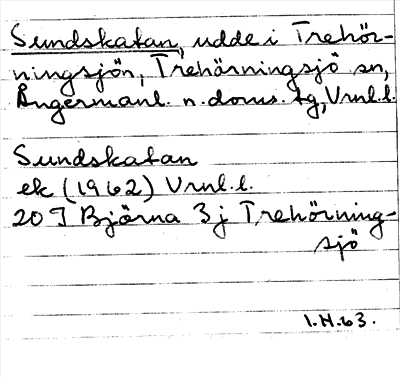 Sundskatan, udde i Trehör-
ningsjön, Trehörningsjö sn,
Ångermanl. n. doms. tg, Vrnl.l.
Sundskatan
ek (1962) Vrnl.l.
20 I Björna 3j Trehörning-
sjö
I.H.63.